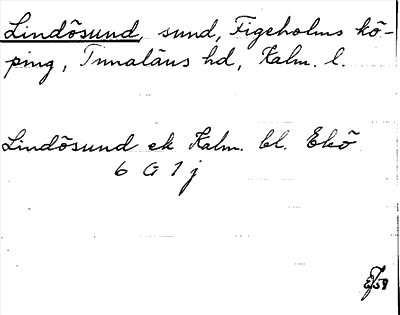 Lindösund, sund, Figeholms kö-
ping, Tunaläns hd, Kalm. l.
Lindösund ek Kalm. bl. Ekö
6 G 1 j